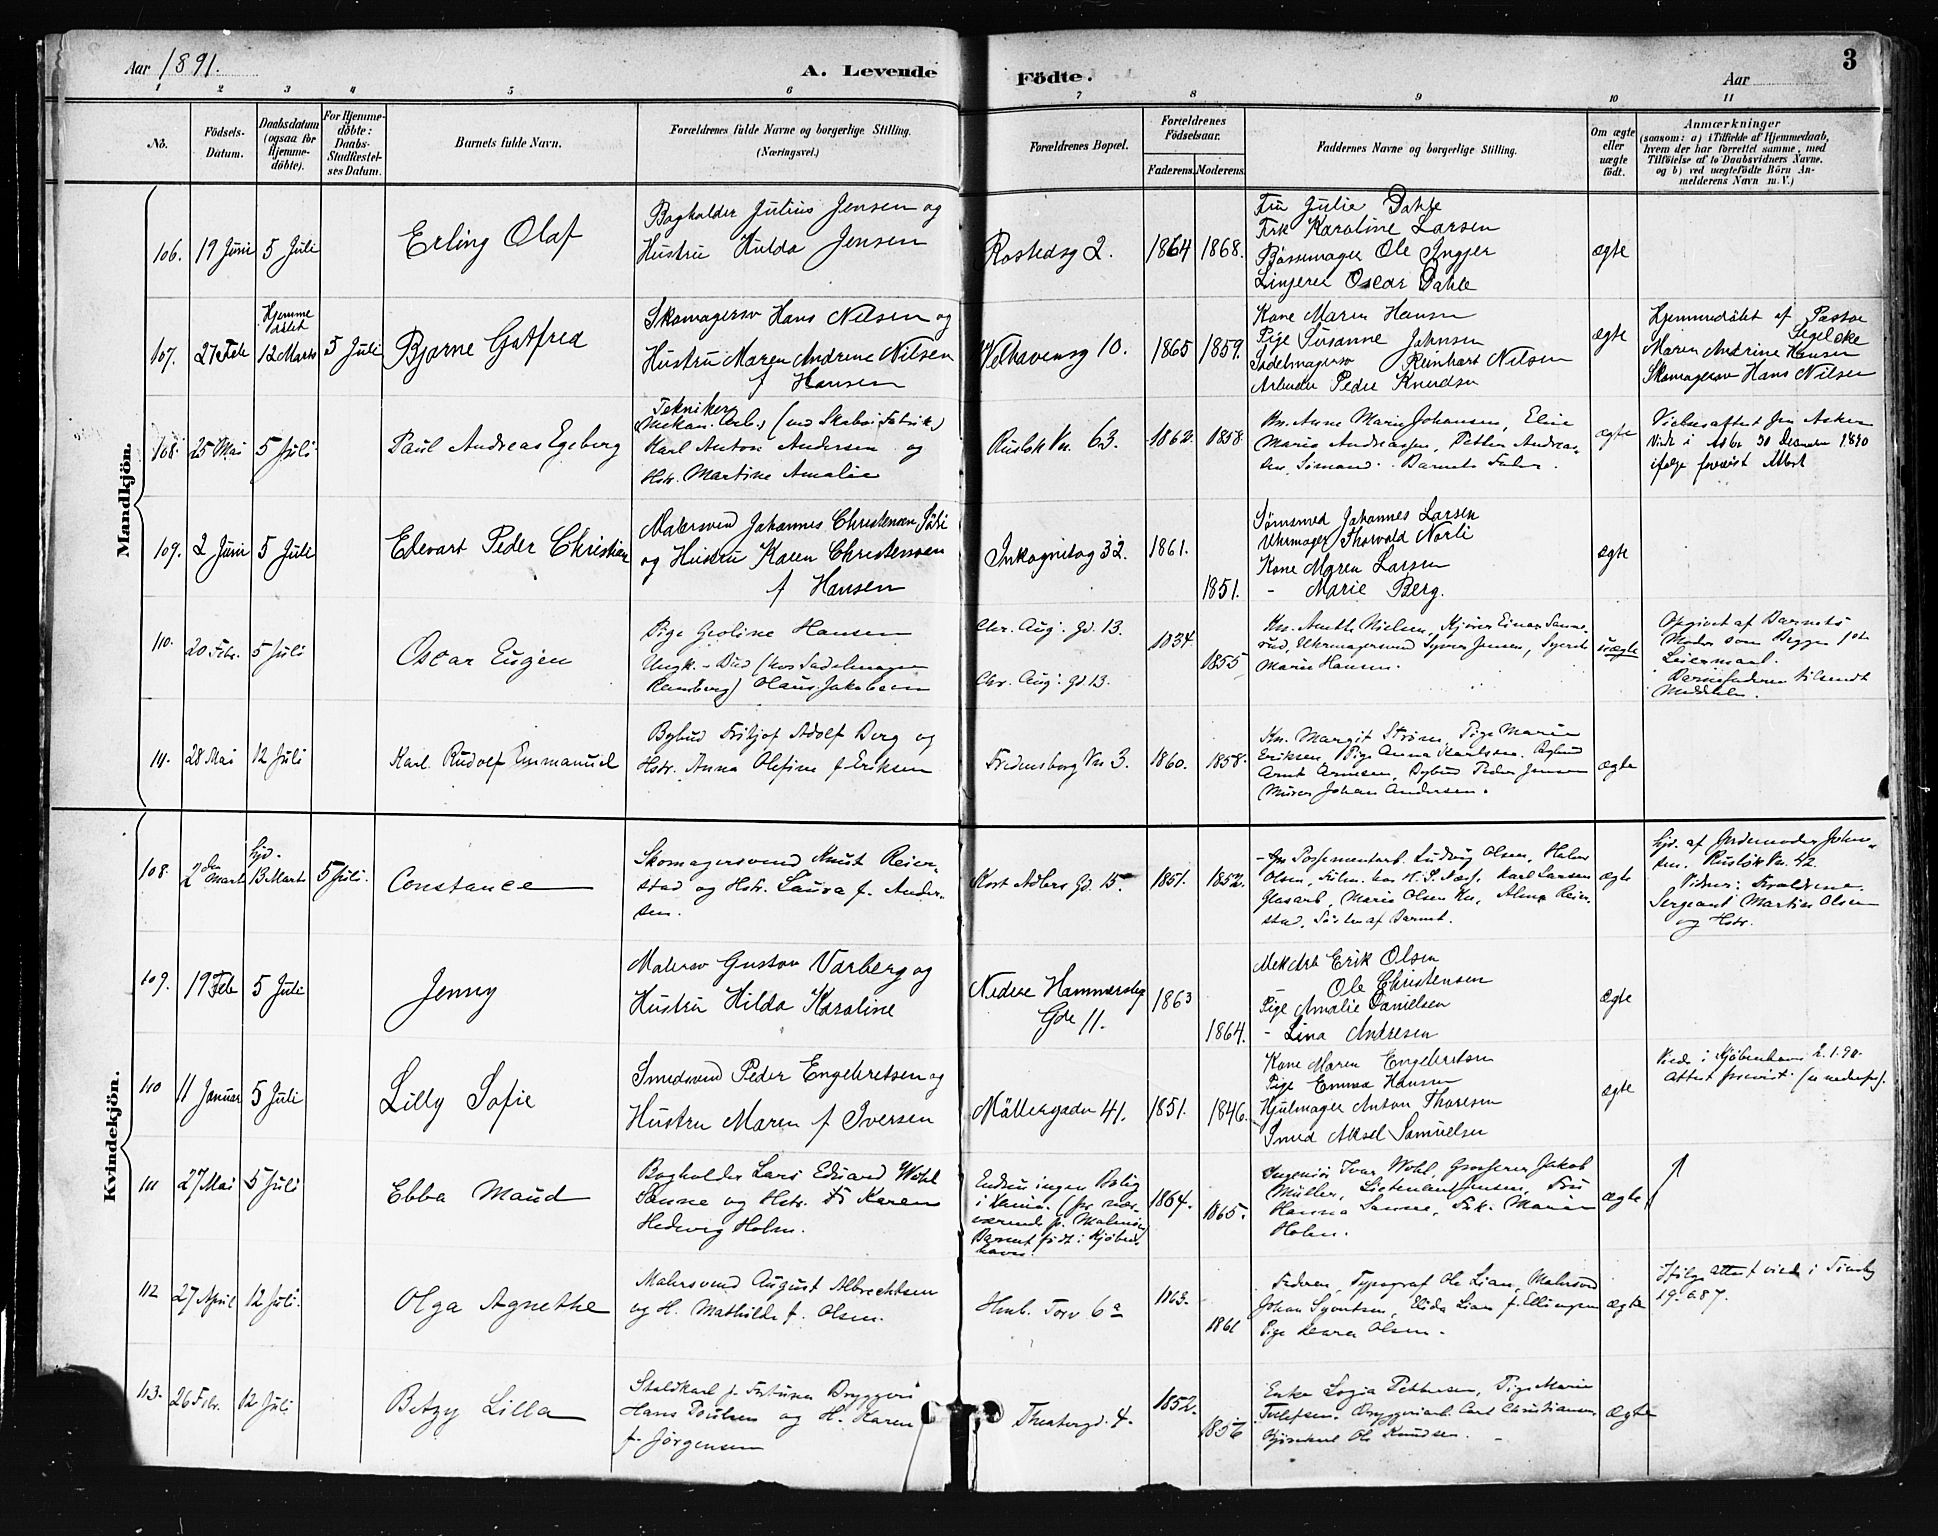 Aar 1891.
A. Levende Födte.
Aar
3
1 2 3 4 5 6 7 8 9 10 11
No.
Födsels-Datum.
Daabsdatum (ogsaa för Hjemmedöbte).
For Hjemmedöbte: Daabs-Stadfæstelses Datum.
Barnets fulde Navn.
Forældrenes fulde Navne og borgerlige Stilling.
(Næringsvei.)
Forældrenes Bopæl.
Forældrenes Födselsaar.
Faderens. Moderens.
Faddernes Navne og borgerlige Stilling.
Om ægte eller uægte födt.
Anmærkninger
(saasom: a) i Tilfælde af Hjemmedaab, hvem der har forrettet samme, med Tilföielse af to Daabsvidners Navne. og b) ved uægtefödte Börn Anmelderens Navn m. V.)
Mandkjön.
106. 19 Juni 5 Juli
Erling Olaf
Bogholder Julius Jensen og
Hustru Hulda Jensen
Rostedsg 2.
1864 1868.
Fru Julie Dahle
Frk Karoline Larsen
Bössemager Ole Ingjer
Linjerer Oscar Dahle
ægte
107. 27 Feb
Hjemme
12 Marts 5 Juli
Bjarne Gotfred
Skomagersv Hans Nilsen og
Hustru Maren Andrine Nilsen
f Hansen
Welhavensg 10.
1865 1859.
Kone Maren Hansen
Pige Susanne Johnsen
Sadelmagersv Reinhart Nilsen
Arbeider Peder Knudsen
ægte
Hjemmedöbt af Pastor
Segelcke
Maren Andrine Hansen
Skomagersv Hans Nilsen
108. 25 Mai 5 Juli
Paul Andreas Egeberg
Tekniker
Mekan. Arb.
Karl Anton Andersen og
Hstr. Martine Amalie
Rusløk Vn. 63.
1862. 1858.
Kn. Anne Marie Johansen, Eline
Marie Andreassen, Petter Andrea-
sen, Sömand. Barnets Fader.
ægte
30 Desember 1890
ifølge forevist Attest
109. 2 Juni 5 Juli
Edevart Peder Christian
Malersvend Johannes Christensen
og Hustru Karen Christensen
f Hansen
Inkognitog 32.
1861.
1851.
Sömsmed Johannes Larsen
Uhrmager Thorvald Norli
Kone Maren Larsen
- Marie Berg.
ægte
110. 20 Febr. 5 Juli
Oscar Eugen
Pige Geoline Hansen
Ungk. - Bud (hos Sadelmager
Ramberg) Olaus Jakobsen
Chr. Aug. Gd. 13.
Chr. Aug. Gd. 13.
1834.
1855
Kn. Anethe Nielsen,
Uhrmagersvend Syver Jensen,
Marie Hansen.
uægte
Opgivet af Barnets
Moder som Begges 1ste
Leiermaal.
Barnefaderen tilsendt
Meddelelse.
111. 28 Mai 12 Juli
Karl Rudolf Emmanuel
Bybud Fritjof Adolf Berg og
Hstr. Anna Olefine f. Eriksen
Fredensborg Vn 3.
1860. 1858.
Kn. Margit Ström, Pige Marie
Eriksen, Pige Anna Karlsen, Bybud
Arnt Arnesen, Bybud Peder Jensen
Murer Johan Andersen.
ægte
Kvindekjön.
108. 2den Marts
Hjd.
13 Marts 5 Juli.
Constance
Skomagersvend Knut Reier-
stad og Hstr. Laura f. Ander-
sen.
Kort Adlers Gd. 15.
1851. 1852.
Possementarb. Ludvig Olsen,
Olsen, Karl Larsen
Glasarb, Marie Olsen Kn, Alma Reier-
stad, Søster af Barnet.
ægte
Hjd. af Jordemoder John-
sen. Rusløk Vn. 42.
Vidner: Forældrene.
Sergeant Martin Olsen
og Hstr.
109. 19 Feb 5 Juli
Jenny
Malersv Gustav Varberg og
Hustru Hilda Karoline
Nedre Hammersbg
Gde 11.
1863
1864.
MekArb Erik Olsen
Ole Christensen
Pige Amalie Danielsen
- Lina Andresen
ægte
110 11 Januar 5 Juli
Lilly Sofie
Smedsvend Peder Engebretsen og
Hustru Maren f Iversen
Möllergaden 41.
1851. 1846.
Kone Maren Engebretsen
Pige Emma Hansen
Hjulmager Anton Thoresen
Smed Aksel Samuelsen
ægte
Viede i Kjøbenhavn 2.1.90.
Attest forevist.
111 27 Mai 5 Juli
Ebba Maud
Bogholder Lars Eduard Wohl
Sanne og Hstr. Karen
Hedevig Holm.
Endnu ingen Bolig
i Xania. (for nær-
værende p. Malmø)
Barnet født i Kjøben-
havn.
1864.
1865.
Ingeniör Ivar Wohl, Grosserer Jakob
Müller, Lieutenant Jensen, Fru
Hanna Sanne, Frk. Marie
Holm.
ægte
112 27 April 12 Juli.
Olga Agnethe
Malersvend August Albrechtsen
og H. Mathilde f. Olsen.
Hmb. Torv 6a
1863.
1861
Faderen, Typograf Ole Lian, Malersvd
Johan Syvertsen, Elida Lian f. Ellingsen
Pige Laura Olsen.
ægte
Ifølge attest viede i
19.6.87.
113. 26 Febr. 12 Juli
Betzy Lilla
Staldkarl p. Fortuna Bryggeri
Hans Poulsen og H. Karen
f. Jørgensen
Theatergd. 4.
1852.
1856
Enke Logia Pettersen, Pige Marie
Tollefsen, Bryggeriarb. Carl Christiansen
Ole Knudsen.
ægte